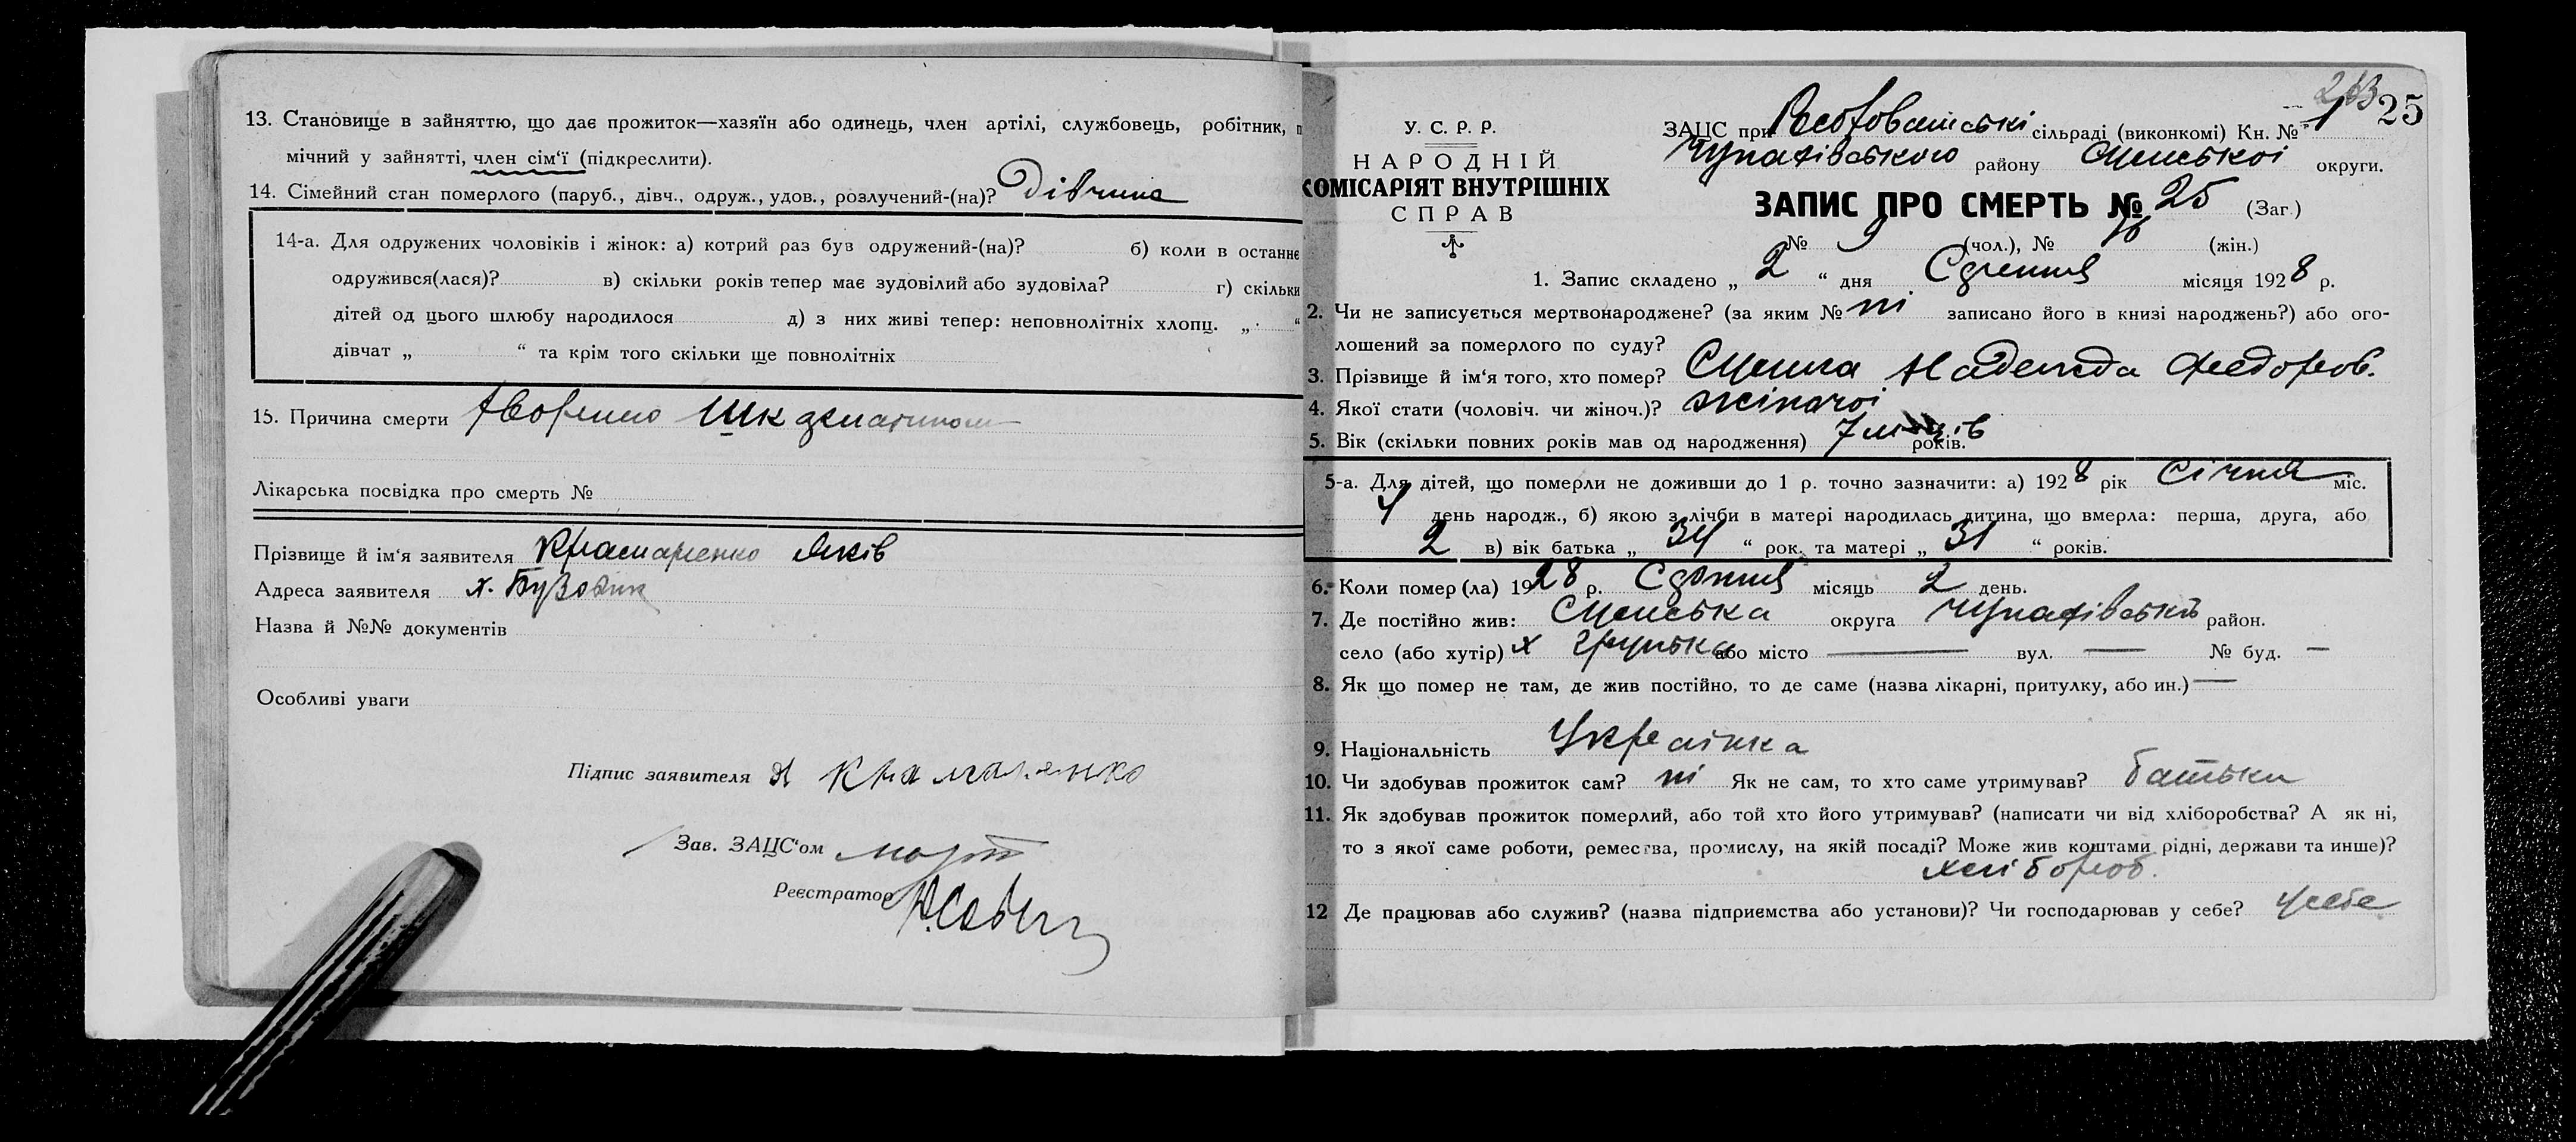 13. Становище в зайняттю, що дає прожиток—хазяїн або одинець, член артілі, службовець, робітник, п
мічний у зайнятті, член сім'ї (підкреслити).
14. Сімейний стан померлого (паруб., дівч., одруж., удов., розлучений-(на)? Дівчина
14-а. Для одружених чоловіків і жінок: а) котрий раз був одружений-(на)? б) коли в останнє
одружився(лася)? в) скільки років тепер має зудовілий або зудовіла? г) скільки
дітей од цього шлюбу народилося д) з них живі тепер: неповнолітніх хлопц. „ “
дівчат „ “ та крім того скільки ще повнолітніх
15. Причина смерти
Лікарська посвідка про смерть №
Прізвище й ім'я заявителя Крамаренко Яків
Адреса заявителя х.
Назва й №№ документів
Особливі уваги
Підпис заявителя Я Крамаренко
Зав. ЗАЦС'ом
Реєстратор
263 25
У. С. Р. Р.
НАРОДНІЙ
КОМІСАРІЯТ ВНУТРІШНІХ
СПРАВ
ЗАЦС при сільраді (виконкомі) Кн. № 1
Чупахівського району Сумської округи.
ЗАПИС ПРО СМЕРТЬ № 25 (Заг.)
№ 9 (чол.), № 16 (жін.)
1. Запис складено „ 2 “ дня Серпня місяця 1928 р.
2. Чи не записується мертвонароджене? (за яким № ні записано його в книзі народжень?) або ого-
лошений за померлого по суду?
3. Прізвище й ім'я того, хто помер? Надежда Федоров.
4. Якої стати (чоловіч. чи жіноч.)? жіночої
5. Вік (скільки повних років мав од народження) 7 років.
5-а. Для дітей, що померли не доживши до 1 р. точно зазначити: а) 1928 рік Січня міс.
4 день народж., б) якою з лічби в матері народилась дитина, що вмерла: перша, друга, або
2 в) вік батька „ 34 “ рок. та матері „ 31 “ років.
6. Коли помер (ла) 1928 р. Серпня місяць 2 день.
7. Де постійно жив: Сумська округа Чупахівський район.
село (або хутір) х Грунька або місто — вул. — № буд. —
8. Як що помер не там, де жив постійно, то де саме (назва лікарні, притулку, або ин.) —
9. Національність Українка
10. Чи здобував прожиток сам? ні Як не сам, то хто саме утримував? батьки
11. Як здобував прожиток померлий, або той хто його утримував? (написати чи від хліборобства? А як ні,
то з якої саме роботи, ремества, промислу, на якій посаді? Може жив коштами рідні, держави та инше)?
хлібороб.
12 Де працював або служив? (назва підприємства або установи)? Чи господарював у себе? у себе